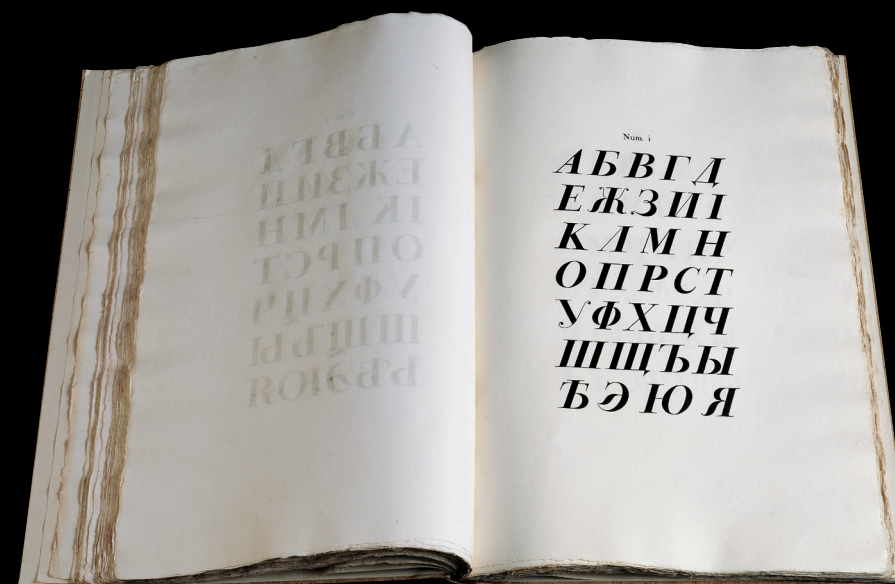 Num i
А Б В Г Д
Е Ж З И І
К Л М Н
О П Р С Т
У Ф Х Ц Ч
Ш Щ Ъ Ы
Ѣ Э Ю Я